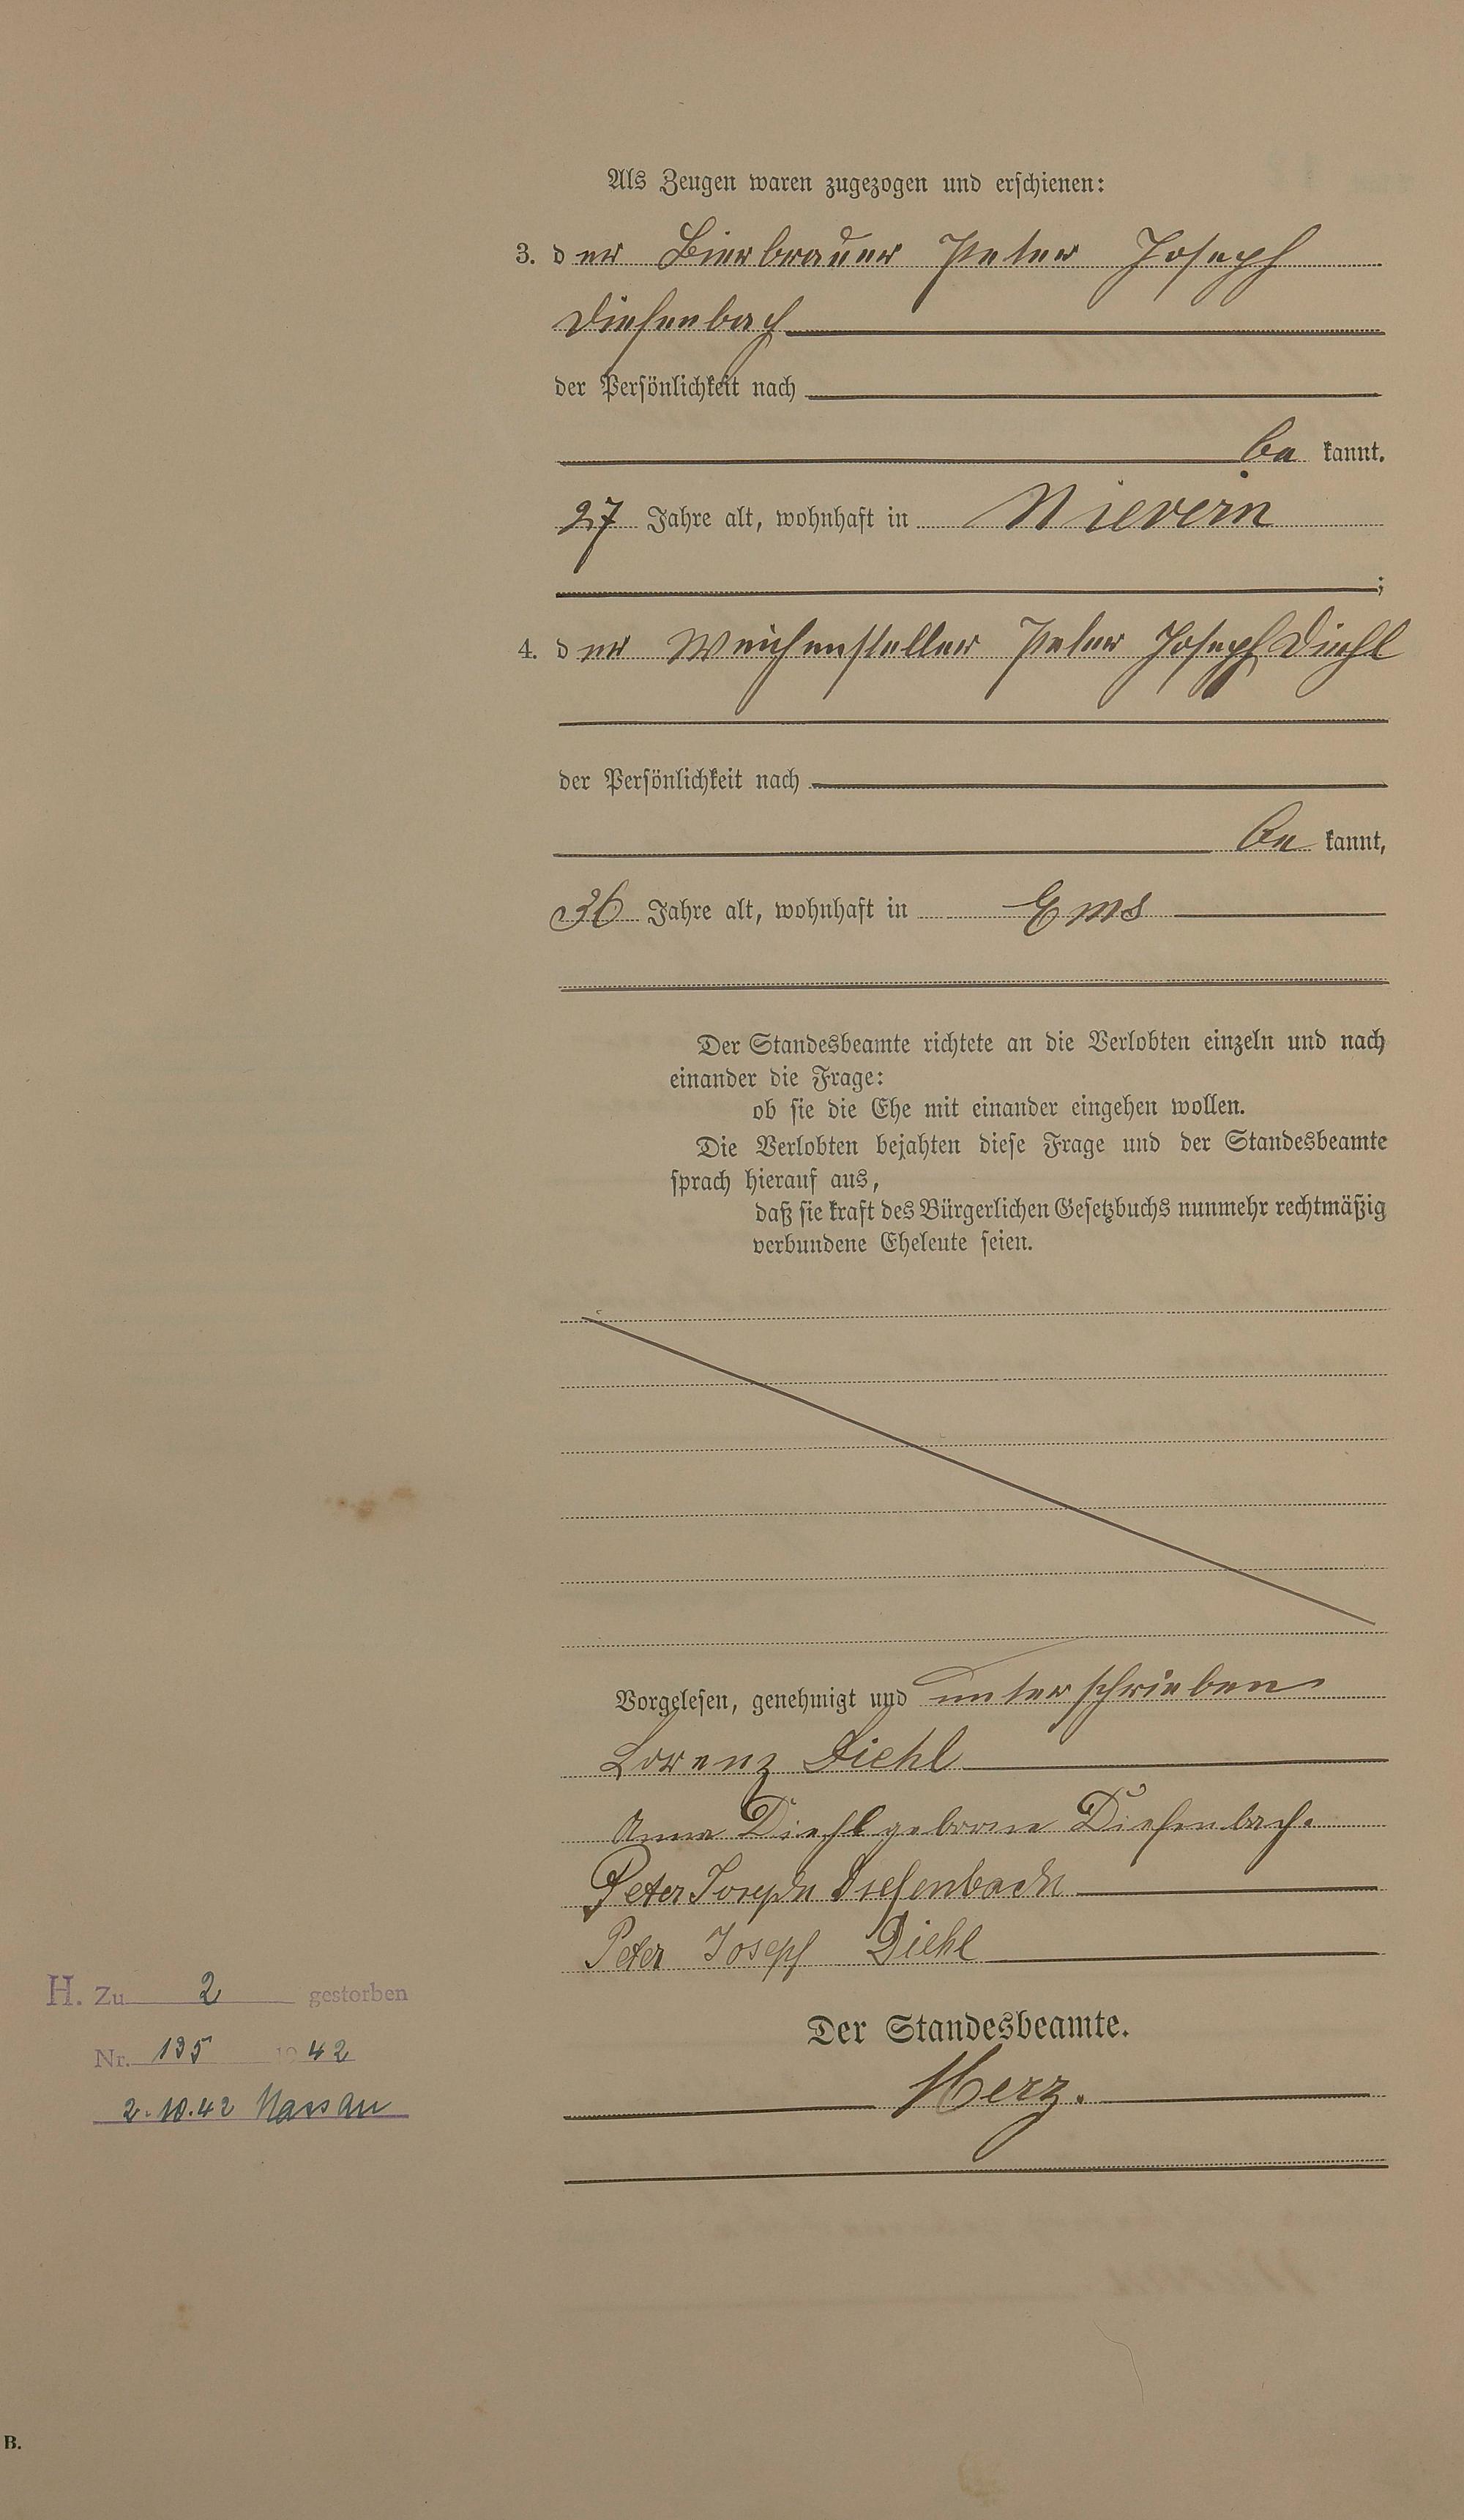 Als Zeugen waren zugezogen und erschienen:
3. der Bierbrauer Peter Joseph
Diefenbach
der Persönlichkeit nach
be kannt.
27 Jahre alt, wohnhaft in Nievern
;
4. der Weichensteller Peter Joseph Diehl
der Persönlichkeit nach
be kannt,
36 Jahre alt, wohnhaft in Ems
Der Standesbeamte richtete an die Verlobten einzeln und nach
einander die Frage:
ob sie die Ehe mit einander eingehen wollen.
Die Verlobten bejahten diese Frage und der Standesbeamte
sprach hierauf aus,
daß sie kraft des Bürgerlichen Gesetzbuchs nunmehr rechtmäßig
verbundene Eheleute seien.
Vorgelesen, genehmigt und unterschrieben
Lorenz Diehl
Anna Diehl geborne Diefenbach.
Peter Joseph Diefenbach
Peter Joseph Diehl
H. Zu 2 gestorben
Nr. 135 1942
2.10.42 Nassau
Der Standesbeamte.
Herz.
B.